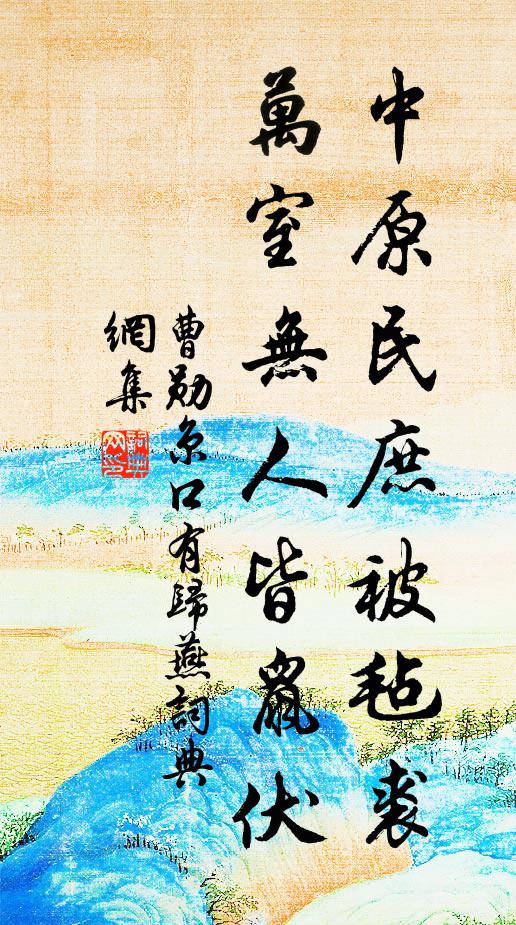 中原民庶被毡裘
萬室無人皆鼠伏
曹勛京口有歸燕詞典
網集